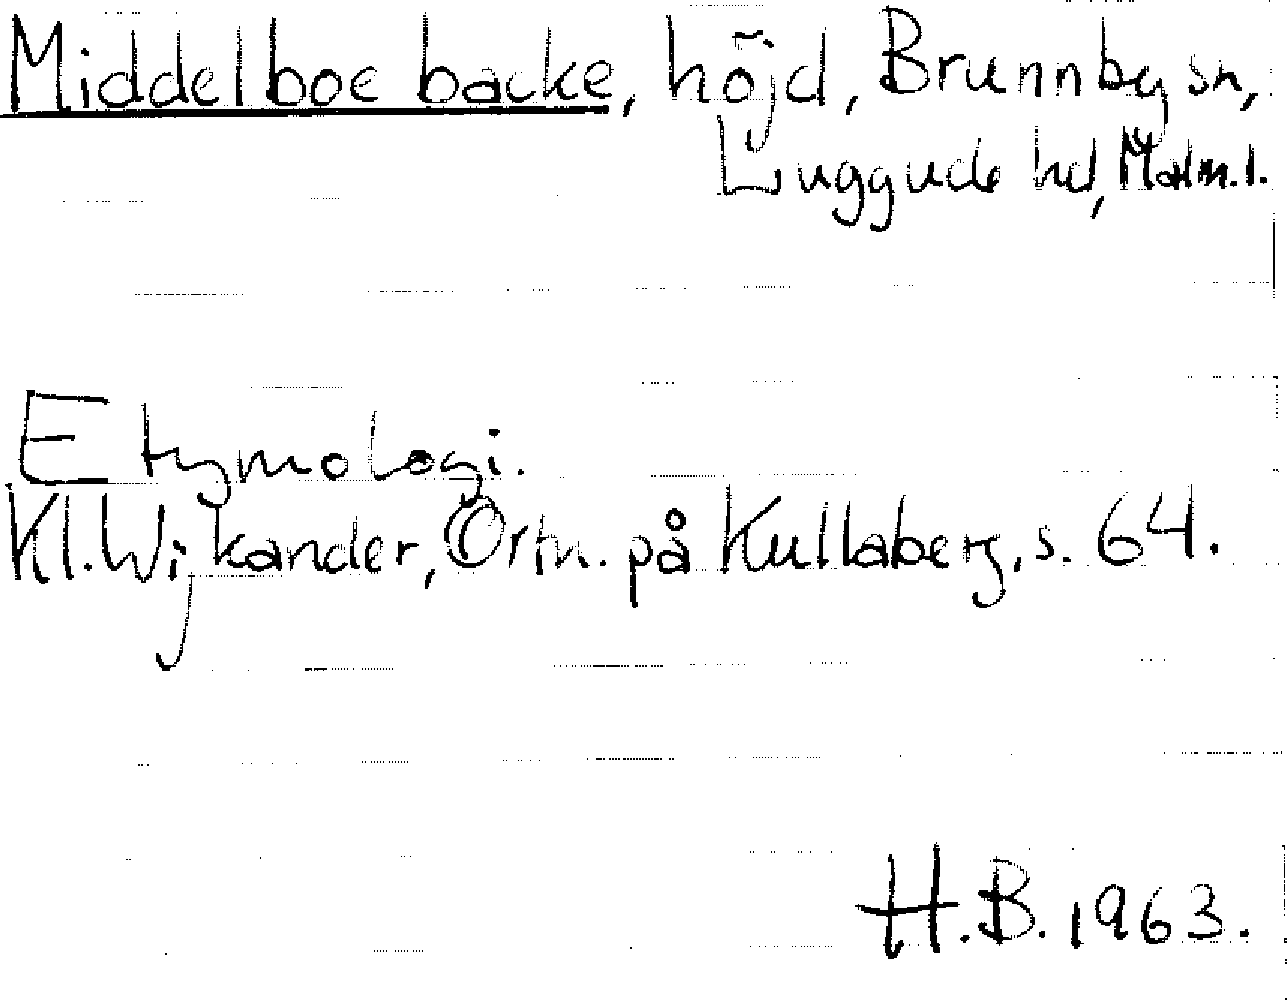 Middelboe backe, höjd, Brunnby sn,
Luggude hd, Malm.l.
Etymologi.
Kl. Wijkander, Ortn. på Kullaberg, s. 64.
H.B. 1963.